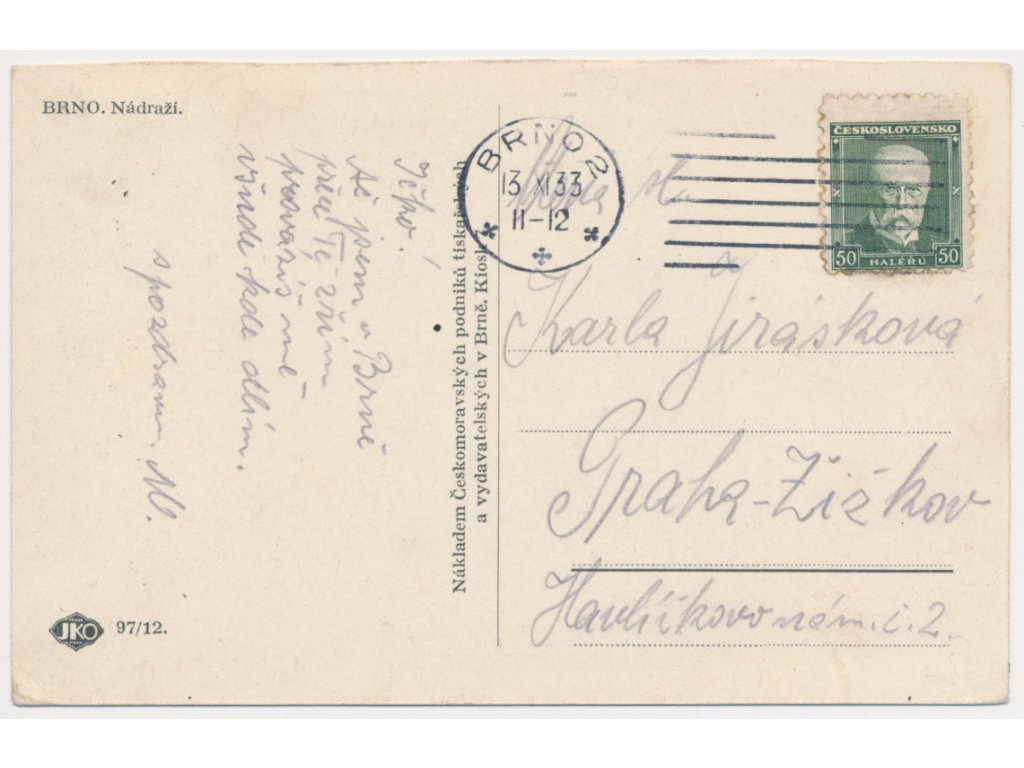 BRNO. Nádraží.
Ač jsem v Brně
přece Tě zřím
provázíš mě
všude kde dlím.
s pozdravem M.
JKO
97/12.
Nákladem Českomoravských podniků tiskařských
a vydavatelských v Brně. Kiosk
BRNO 2
13 XI 33
11-12
ČESKOSLOVENSKO
50 HALÉŘŮ 50
Karla Jirásková
Praha-Žižkov
Havlíčkovo nám. č. 2.